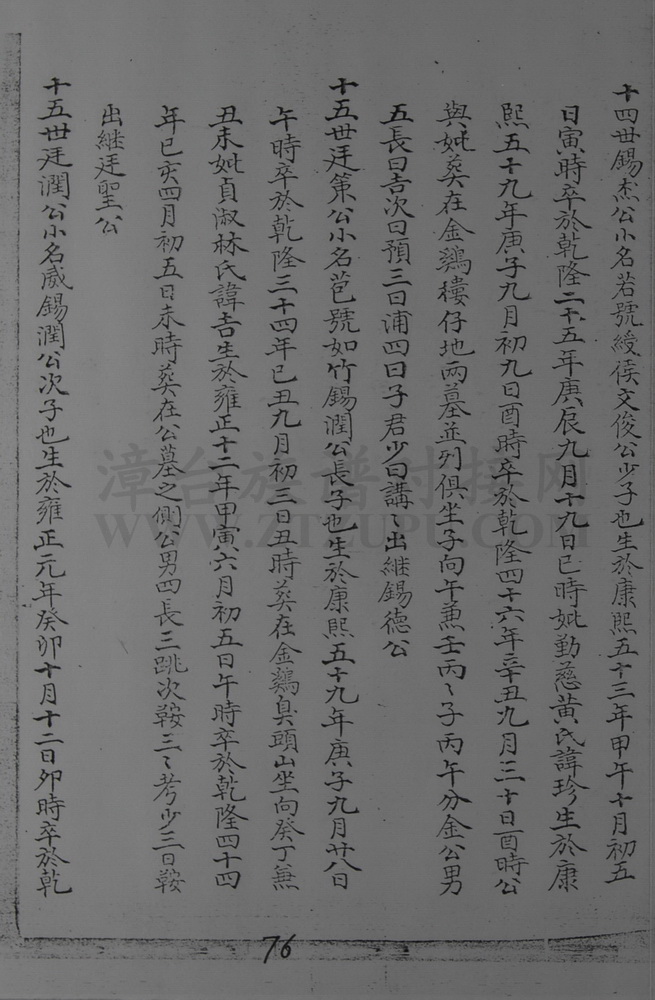 十四世錫杰公小名若號綬侯文俊公少子也生於康熙五十三年甲午十月初五
日寅時卒於乾隆二十五年庚辰九月十九日巳時妣勤慈黃氏諱珍生於康
熙五十九年庚子九月初九日酉時卒於乾隆四十六年辛丑九月三十日酉時公
與妣葬在金鷄樓仔地兩墓並列俱坐子向午兼壬丙丙子丙午分金公男
五長曰吉次曰預三曰浦四曰子君少曰講講出繼錫德公
十五世廷策公小名芭號如竹錫潤公長子也生於康熙五十九年庚子九月廿八日
午時卒於乾隆三十四年己丑九月初三日丑時葬在金鷄臭頭山坐向癸丁兼
丑未妣貞淑林氏諱吉生於雍正十二年甲寅六月初五日午時卒於乾隆四十四
年己亥四月初五日未時葬在公墓之側公男四長三跳次鞍三三考少三曰鞍
出繼廷聖公
十五世廷潤公小名威錫潤公次子也生於雍正元年癸卯十月十二日卯時卒於乾
漳台族谱对接网
WWW.ZTZUPU.COM
76